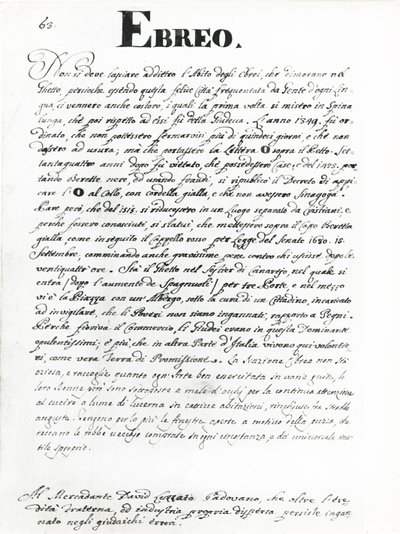 63.
EBREO.
Non si deve lasciare addietro l'Abito degli Ebrei, che dimorano nel
Ghetto, percioche essendo questa felice Città frequentata da Gente d'ogni Lin=
qua, ci vennero anche costoro, i quali la prima volta si misero in Spina
lunga, che poi rispetto ad essi fù detta Giudecca. L'anno 1394. fù or=
dinato, che non potessero fermarvisi più di quindeci giorni, e che non
dassero ad usura; ma che portassero la Lettera O sopra il Petto. Set=
tantaquattro anni dopo fù vietato, che possedessero Case, e del 1495. por
tando Berette nere, ed usando fraudi, si ripublicò il Decreto di appli
care l'O al Collo, con Cordella gialla, e che non avessero Sinagoga.
Pare però, che del 1515. si riducessero in un Luogo separato da Cristiani, e
perche fossero conosciuti, si statuì, che mettessero sopra il Capo Baretta
gialla come in seguito il Cappello rosso per Legge del Senato 1680. 15
Settembre, comminando anche gravissime pene contro chi uscisse dopo le
ventiquattr'ore. Stà il Ghetto nel Sestier di Canareio, nel quale si
entra / dopo l'aumento de Spagnuoli / per tre Porte, e nel mezzo
vi è la Piazza con un'Albergo, sotto la cura di un Cittadino, incaricato
ad invigilare, che li Poveri non siano ingannati, rapporto a Pegni.
Perche fioriva il Commercio, li Giudei erano in questa Dominante
opulentissimi, e più che in altra Parte d'Italia vivono qui volontie=
ri, come vera Terra di Promissione. La Nazione Ebrea non stà
oziosa, e raccoglie quanto ogn'Arte ben esercitata
lor Donne sono sottoposte a male d'occhj, per la continua attenzione
al cucire a lume di lucerna in cattive abitazioni, rinchiuse tra strade
anguste. Tengono per lo più le finestre aperte a motivo della
le robbe vecchie comprate in ogni circostanza, e del universale inu=
tile
Al Mercadante David Luzzato Padovano, che oltre l'ere=
dità Fraterna, ed industria propria dispersa persiste ingan=
nato negli giudaichi errori.